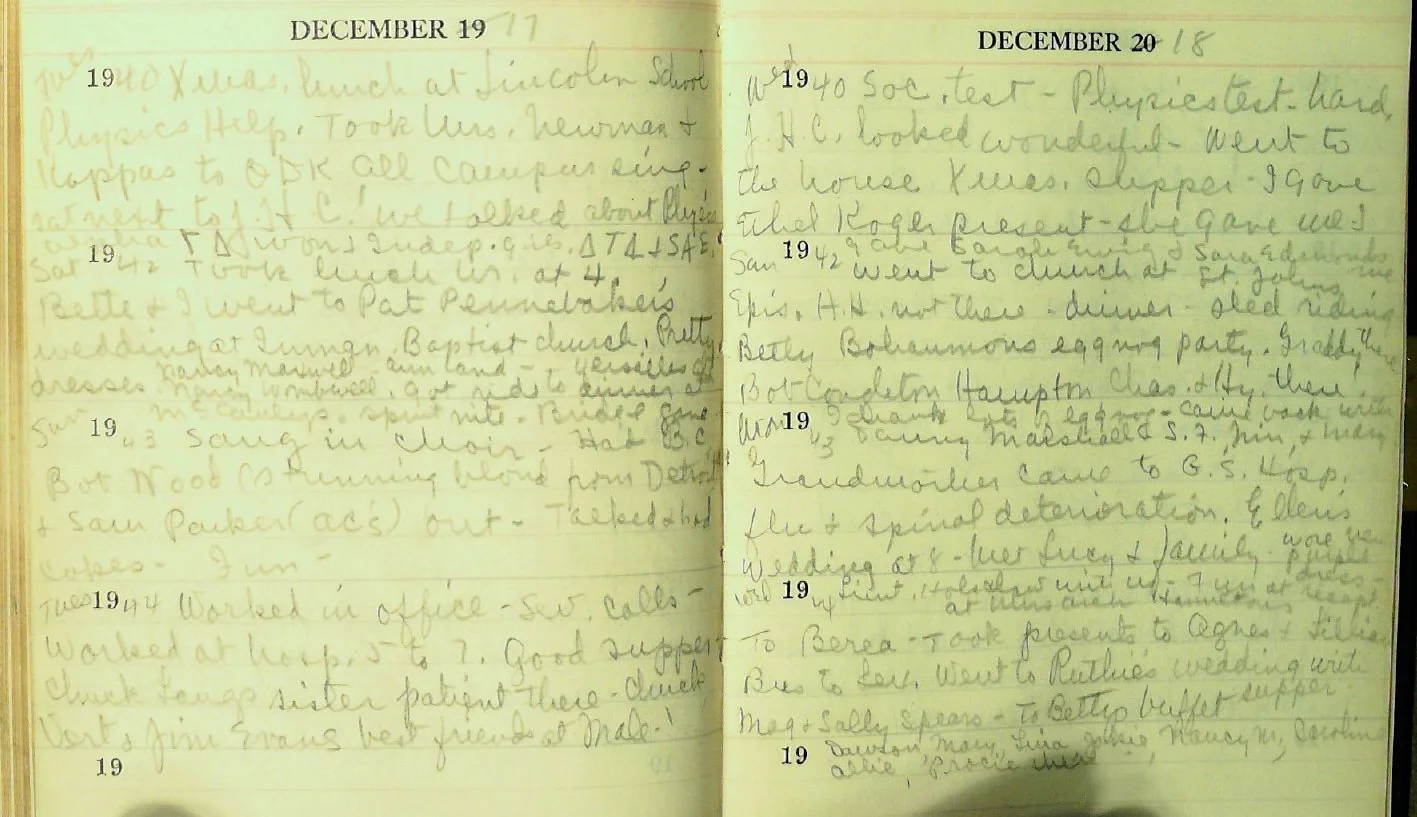 DECEMBER 19 17
Tues 1940 Xmas. lunch at Lincoln School
Physics Help. Took Mrs. Newman +
Kappas to ODK all Campus sing.
sat next to J. H. C.! We talked about Physics
ΓΔ won Indep. gis. ΔTΔ + SAE.
Sat 1942 Took lunch at 4.
Bette + I went to Pat Pennebaker's
wedding at Inman Baptist church. Pretty
dresses. Nancy Maxwell
Nancy Wombwell. Got ride to dinner at
spent nite. Bridge game
Sun 1943 Sang in choir - Had B.C.
Bob Wood (stunning blond from Detroit
+ Sam Parker (ac's) out - Talked + had
cokes - Fun -
Tues 1944 Worked in office - Sev. calls -
Worked at hosp. 5 to 7. Good supper
Chuck Lang's sister patient there - Chuck,
Vert's Jim Evans best friend at Male!
19
DECEMBER 20 18
Wed 1940 Soc. test - Physics test - hard.
J. H. C. looked wonderful - Went to
the house Xmas. supper - I gave
Ethel Koger present - she gave me 1
gave Sarah Ewing + Sara Edmonds me
Sun 1942 Went to church at St. Johns
Epis. H.H. not there - dinner - sled riding
Betty Bohannons eggnog party. Graddy there
Bob Congleton Hampton Chas. + Hy. there.
I drank lots of eggnog - came back with
Mon 1943 Fanny Marshall + S. F. Jim, + Mary
Grandmother came to G. S. Hosp.
flu + spinal deterioration. Ellen's
wedding at 8 - Met Lucy + family - wore
purple dress -
Wed 1944 Lieut. with us - at recept.
at
To Berea - Took presents to Agnes + Lillian
Bus to Lex. Went to Ruthie's wedding with
Mag + Sally Spears - To Bettys buffet supper -
19 Dawson, Mary, Lina, Jackie, Nancy M, Caroline
Allie, Procie there